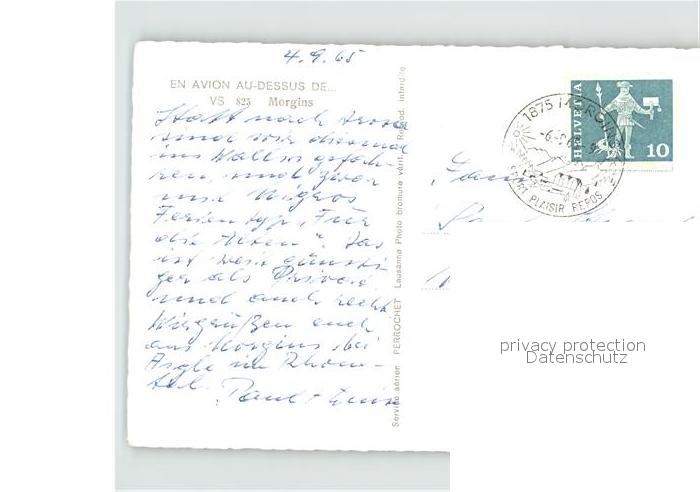 4.9.65
EN AVION AU-DESSUS DE...
VS 825 Morgins
Statt nach Arosa
sind wir diesmal
ins Wallis gefah-
ren und zwar
mit Migros
Ferientyp „Für
die Alten“. Das
ist viel günsti-
ger als Privat
und auch recht.
Wir grüßen euch
aus Morgins bei
Aigle im Rhone-
tal.
Paul +
Service aérien PERROCHET Lausanne Photo bromure vérit. Reprod. interdite
HELVETIA
10
1875
PLAISIR REPOS
privacy protection
Datenschutz